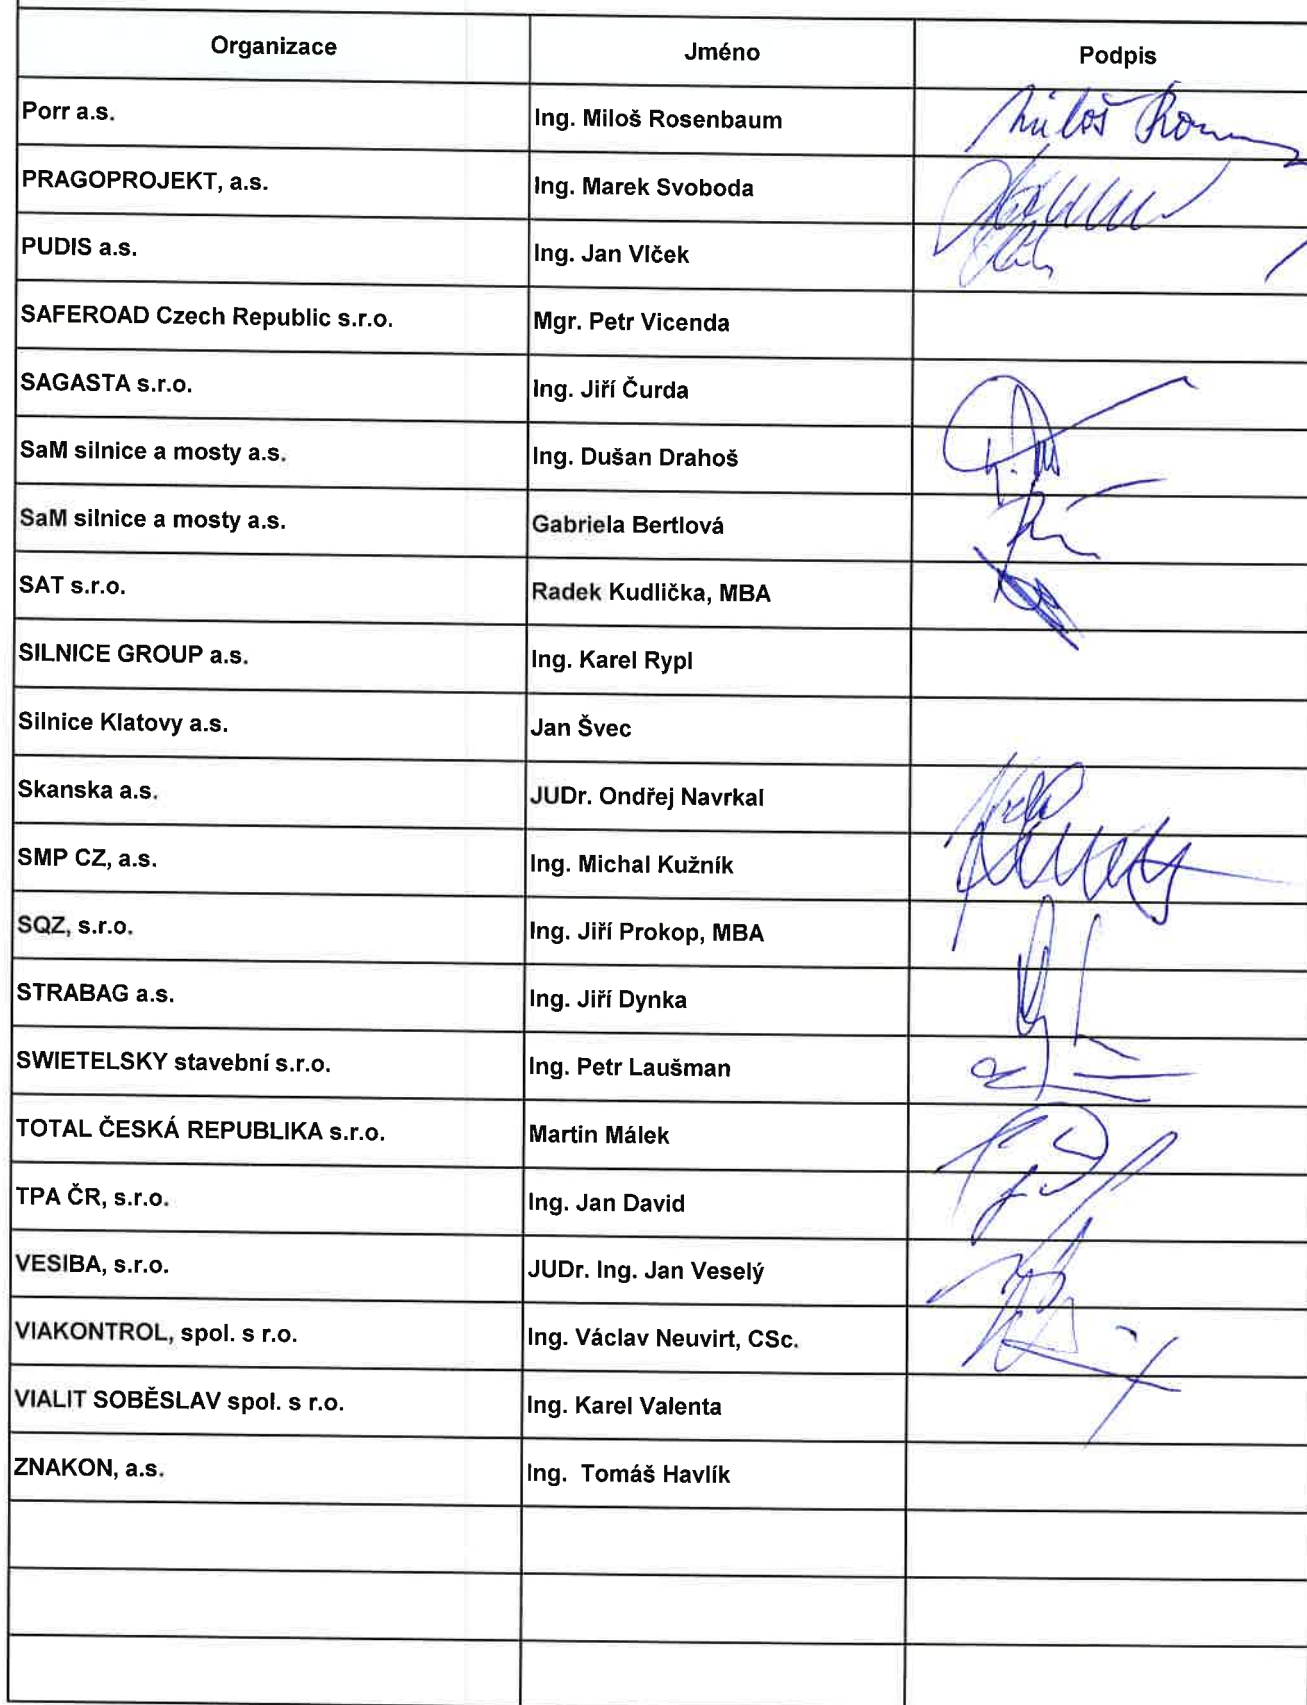 Organizace Jméno Podpis
Porr a.s. Ing. Miloš Rosenbaum Miloš
PRAGOPROJEKT, a.s. Ing. Marek Svoboda
PUDIS a.s. Ing. Jan Vlček
SAFEROAD Czech Republic s.r.o. Mgr. Petr Vicenda
SAGASTA s.r.o. Ing. Jiří Čurda
SaM silnice a mosty a.s. Ing. Dušan Drahoš
SaM silnice a mosty a.s. Gabriela Bertlová
SAT s.r.o. Radek Kudlička, MBA
SILNICE GROUP a.s. Ing. Karel Rypl
Silnice Klatovy a.s. Jan Švec
Skanska a.s. JUDr. Ondřej Navrkal
SMP CZ, a.s. Ing. Michal Kužník
SQZ, s.r.o. Ing. Jiří Prokop, MBA
STRABAG a.s. Ing. Jiří Dynka
SWIETELSKY stavební s.r.o. Ing. Petr Laušman
TOTAL ČESKÁ REPUBLIKA s.r.o. Martin Málek
TPA ČR, s.r.o. Ing. Jan David
VESIBA, s.r.o. JUDr. Ing. Jan Veselý
VIAKONTROL, spol. s r.o. Ing. Václav Neuvirt, CSc.
VIALIT SOBĚSLAV spol. s r.o. Ing. Karel Valenta
ZNAKON, a.s. Ing. Tomáš Havlík